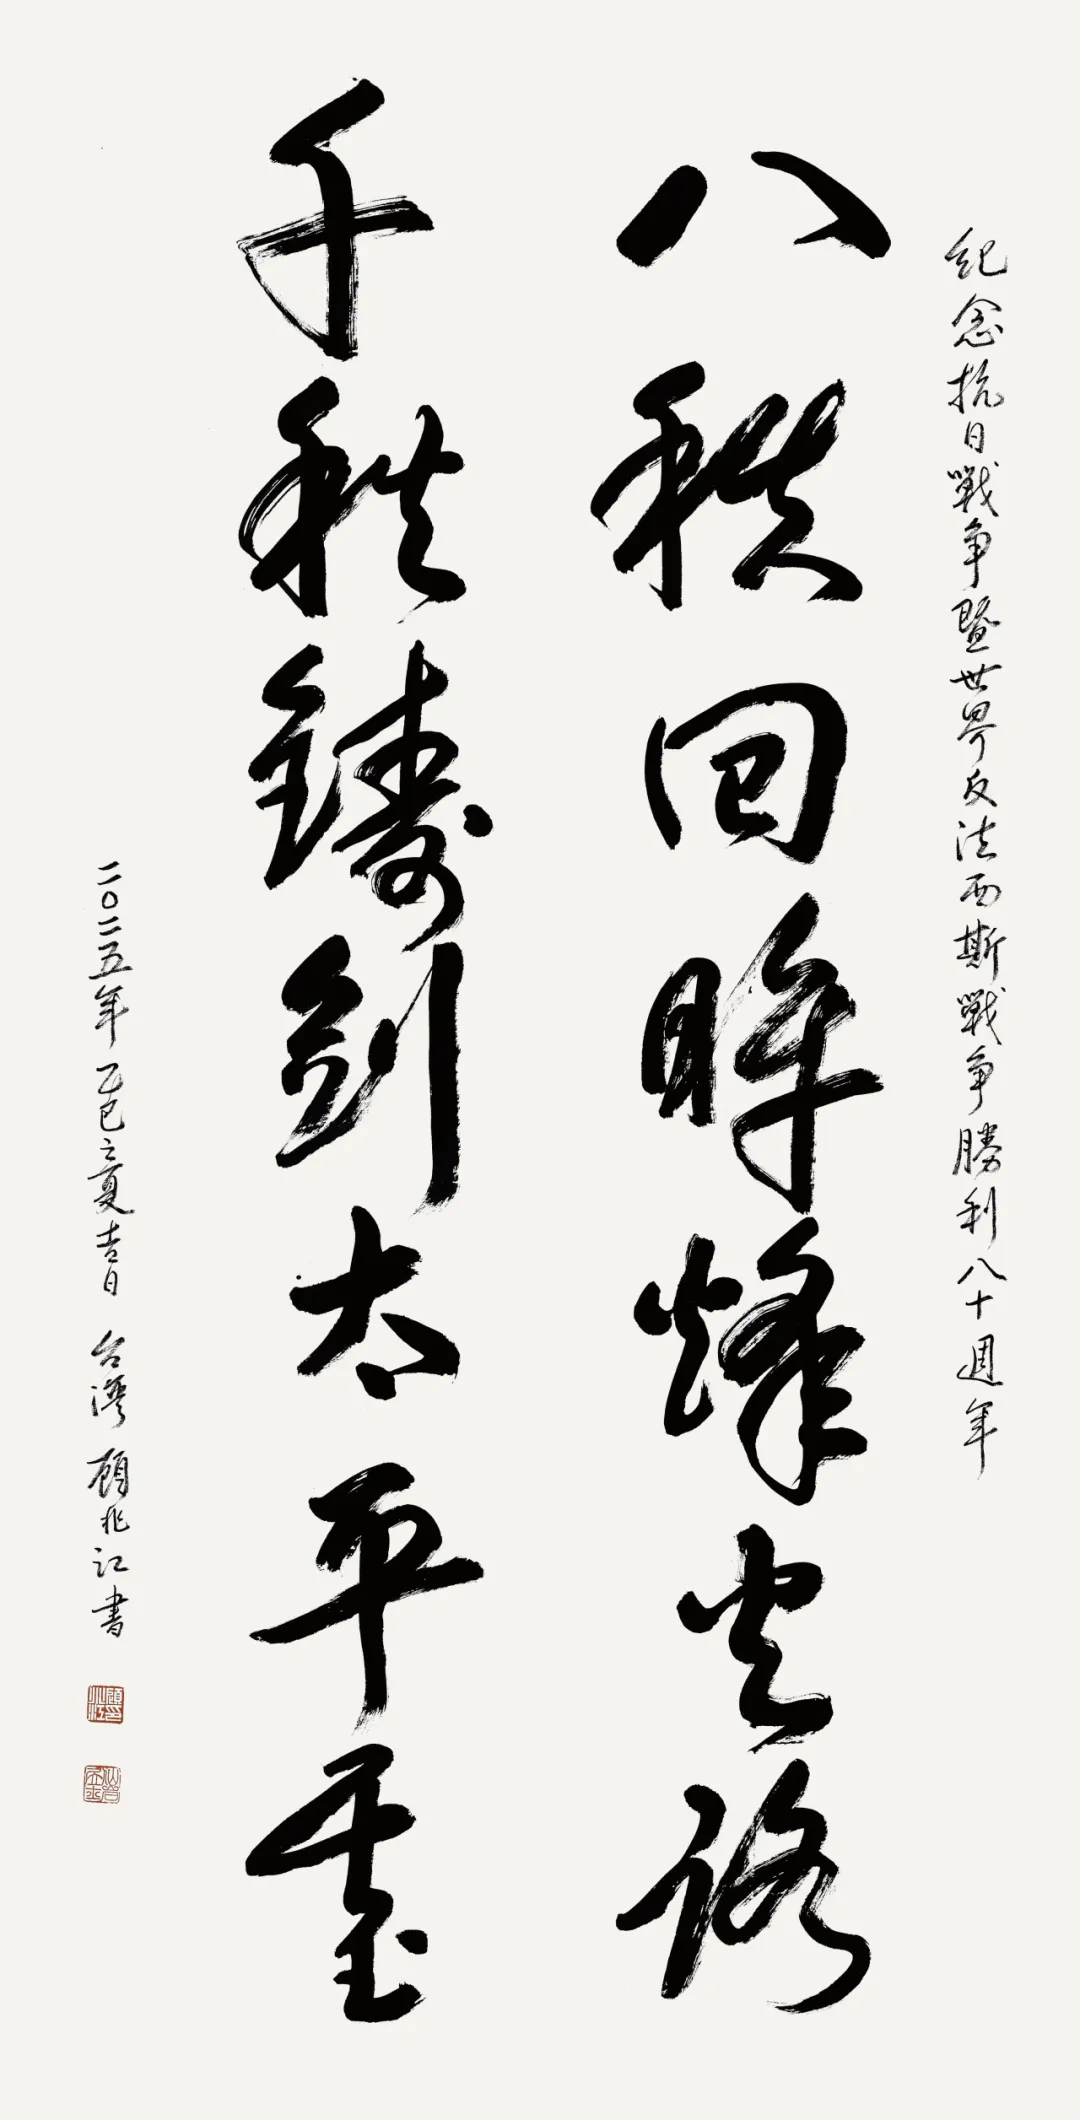 紀念抗日戰争暨世界反法西斯戰争勝利八十週年
八秩回眸烽火路
千秋鑄劍太平臺
二〇二五年乙巳之夏吉日 台灣 顧兆江書